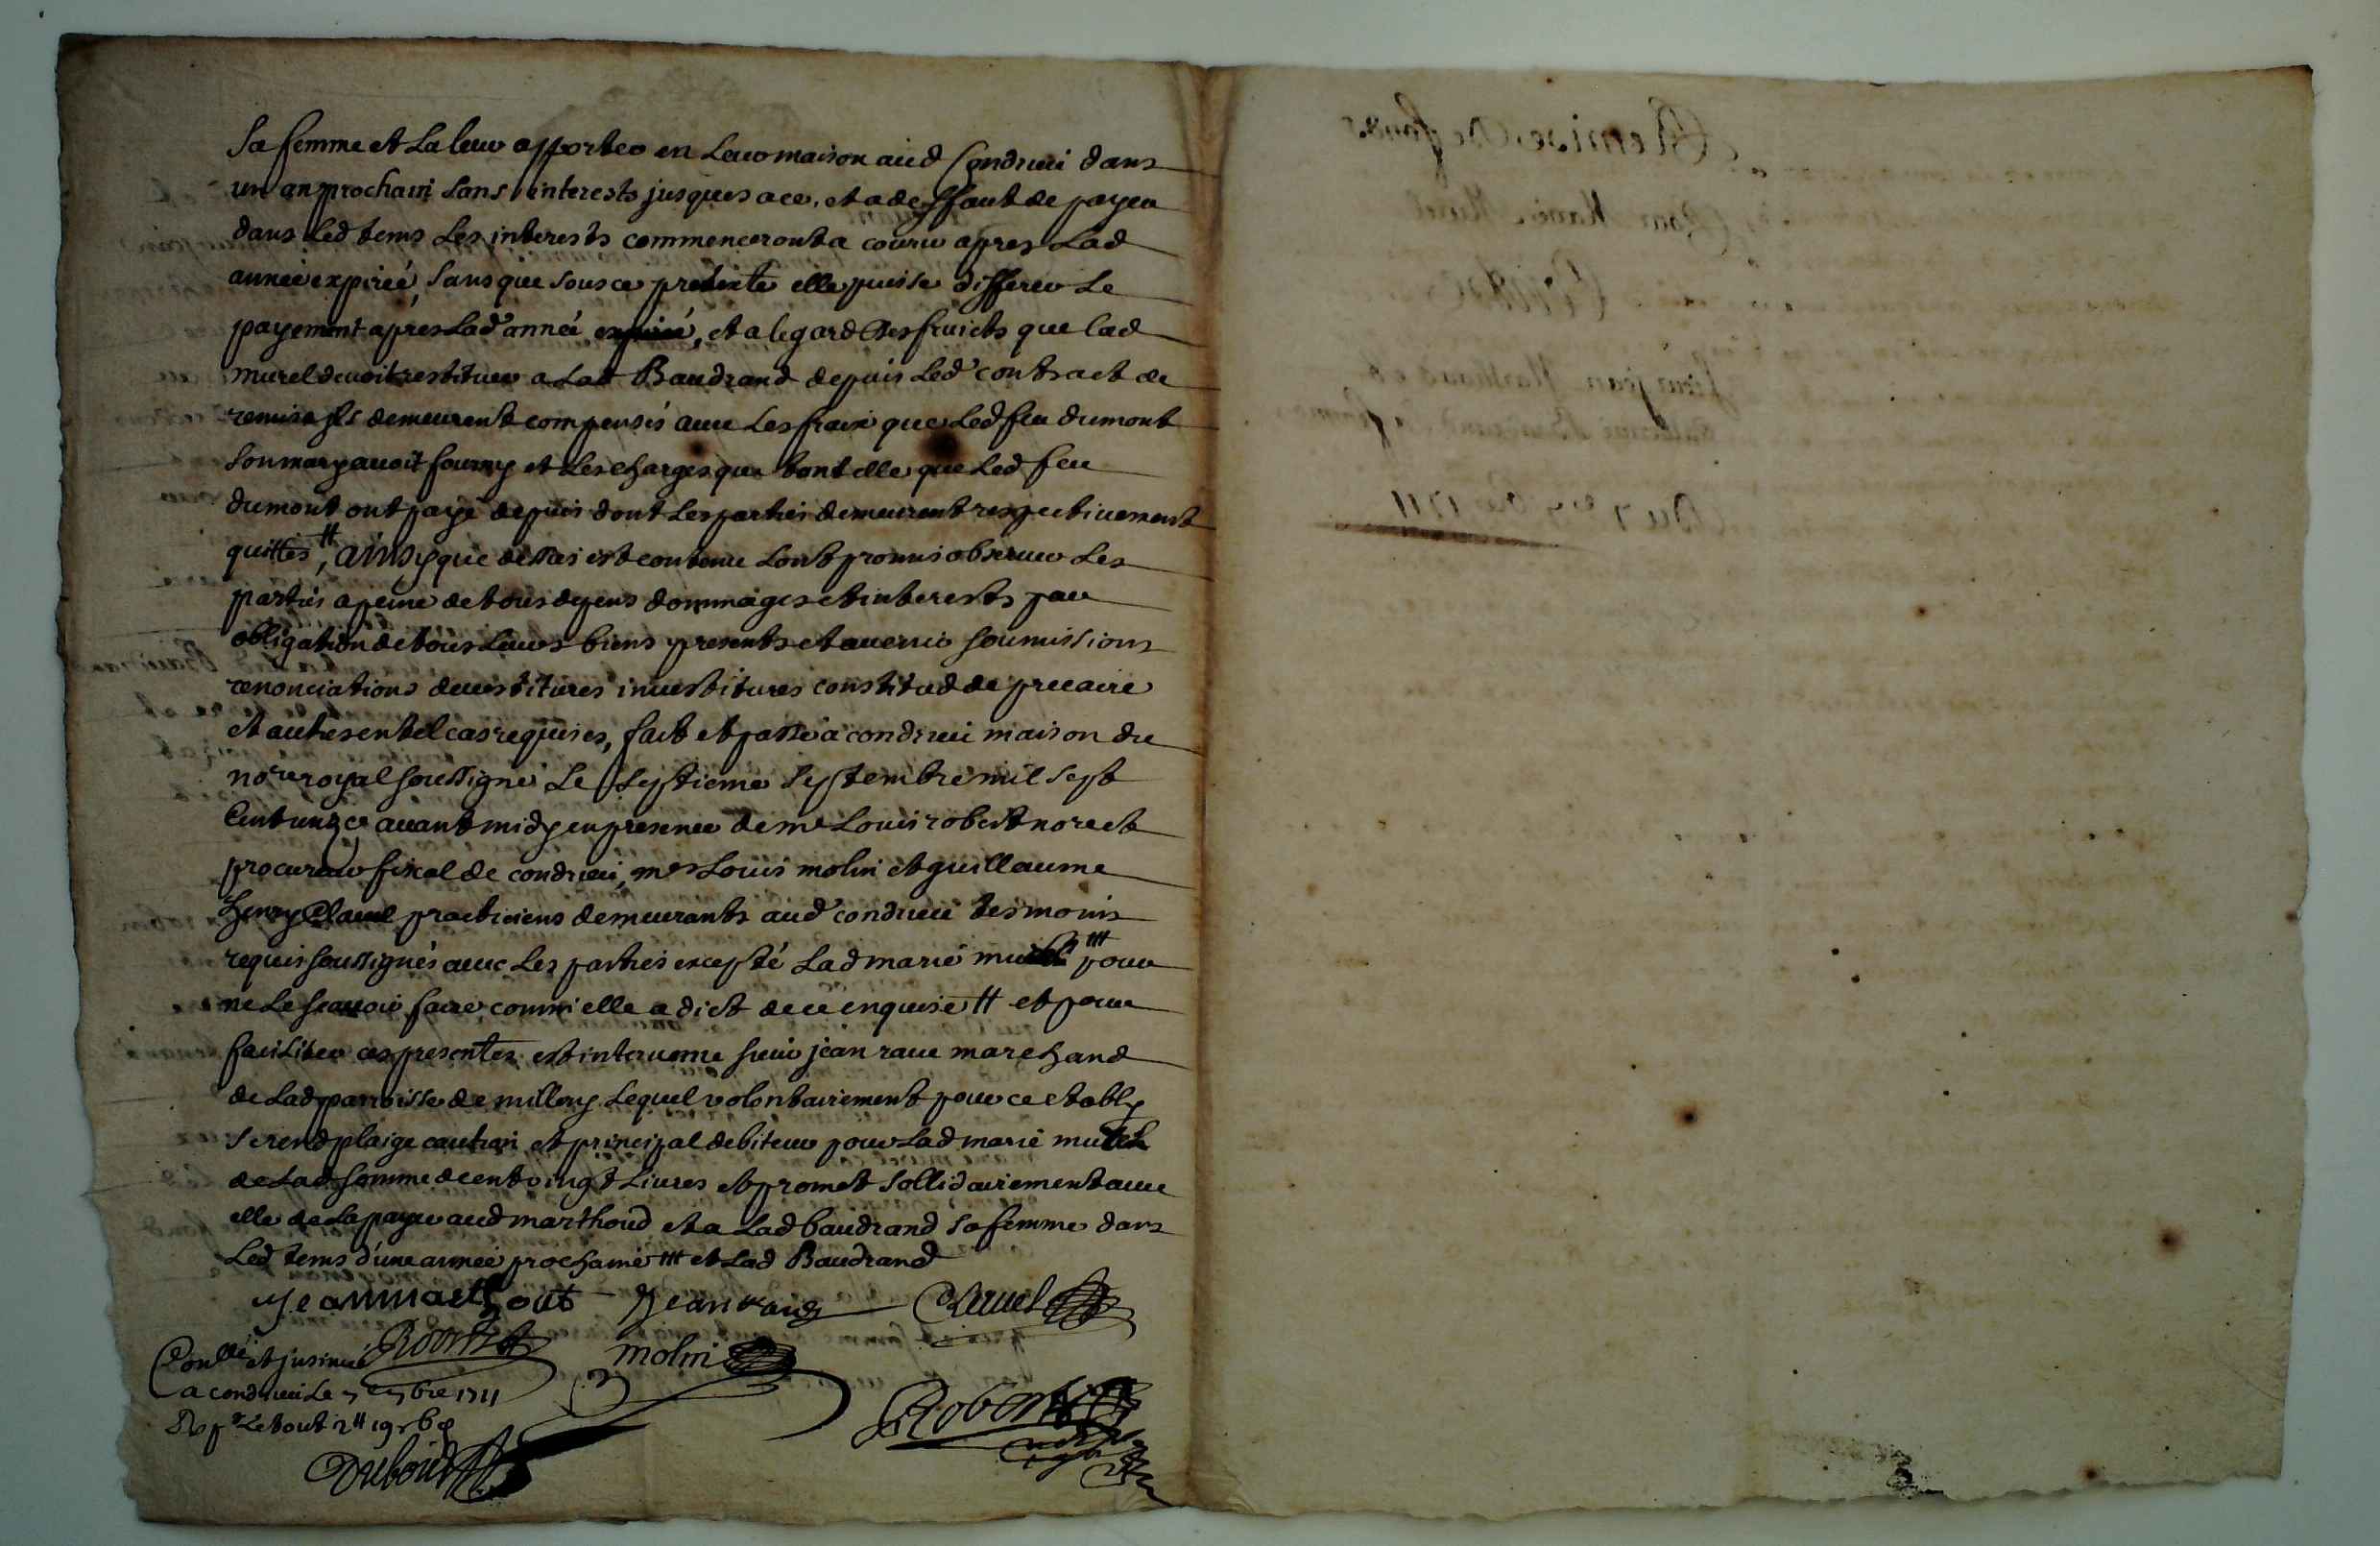 sa femme et la leur apporter en leur maison aud Condrieu dans
un an prochain sans interests jusques a ce, et a deffaut de payer
dans led tems les interests commenceront a courir apres lad
année expirée, sans que sous ce pretexte elle puisse differer le
payement apres lad année expirée, et a legard des fruicts que lad
murel devoit restituer a lad Baudrand depuis led contract de
remise ils demeurent compensés avec les fraix que led feu dumont
son mary avoit fourny et les charges que tant elle que led feu
dumont ont payé depuis dont les parties demeurent respectivement
quittes, ainsy que dessus est contenu l'ont promis observer les
parties a peine de tous depens dommages et interests par
obligation de tous leurs biens presents et avenir soumissions
renonciations devestitures investitures constitud de precaire
et autres en tel cas requises, fait et passé a condrieu maison du
nore royal soussigné le septieme septembre mil sept
cent unze avant midy en presence de me Louis robert nore et
procureur fiscal de condrieu, mes Louis molin et guillaume
henry Clavel practiciens demeurants aud condrieu tesmoins
requis soussignés avec les parties excepté lad marie murel pour
ne le sçavoir faire comm elle a dict de ce enquise # et pour
faciliter ces presentes est intervenu sieur jean rave marchand
de lad parroisse de millery lequel volontairement pour ce etably
se rend plaige caution et principal debiteur pour lad marie murel
de lad somme de cent vingt livres et promet sollidairement avec
elle de la payer aud marthoud et a lad baudrand sa femme dans
led tems d'une année prochaine et lad Baudrand
Jean marthout Jean rave Clavel
Robert molin
Conllé et insinué
a condrieu le 7 7bre 1711
R p le tout 2# 19s 6d
Robert
Duboid
Remise de fonds
Pour Marie Murel
Contre
Sieur jean Marthoud et
Catherine Baudrand sa femme
Du 7e 7bre 1711